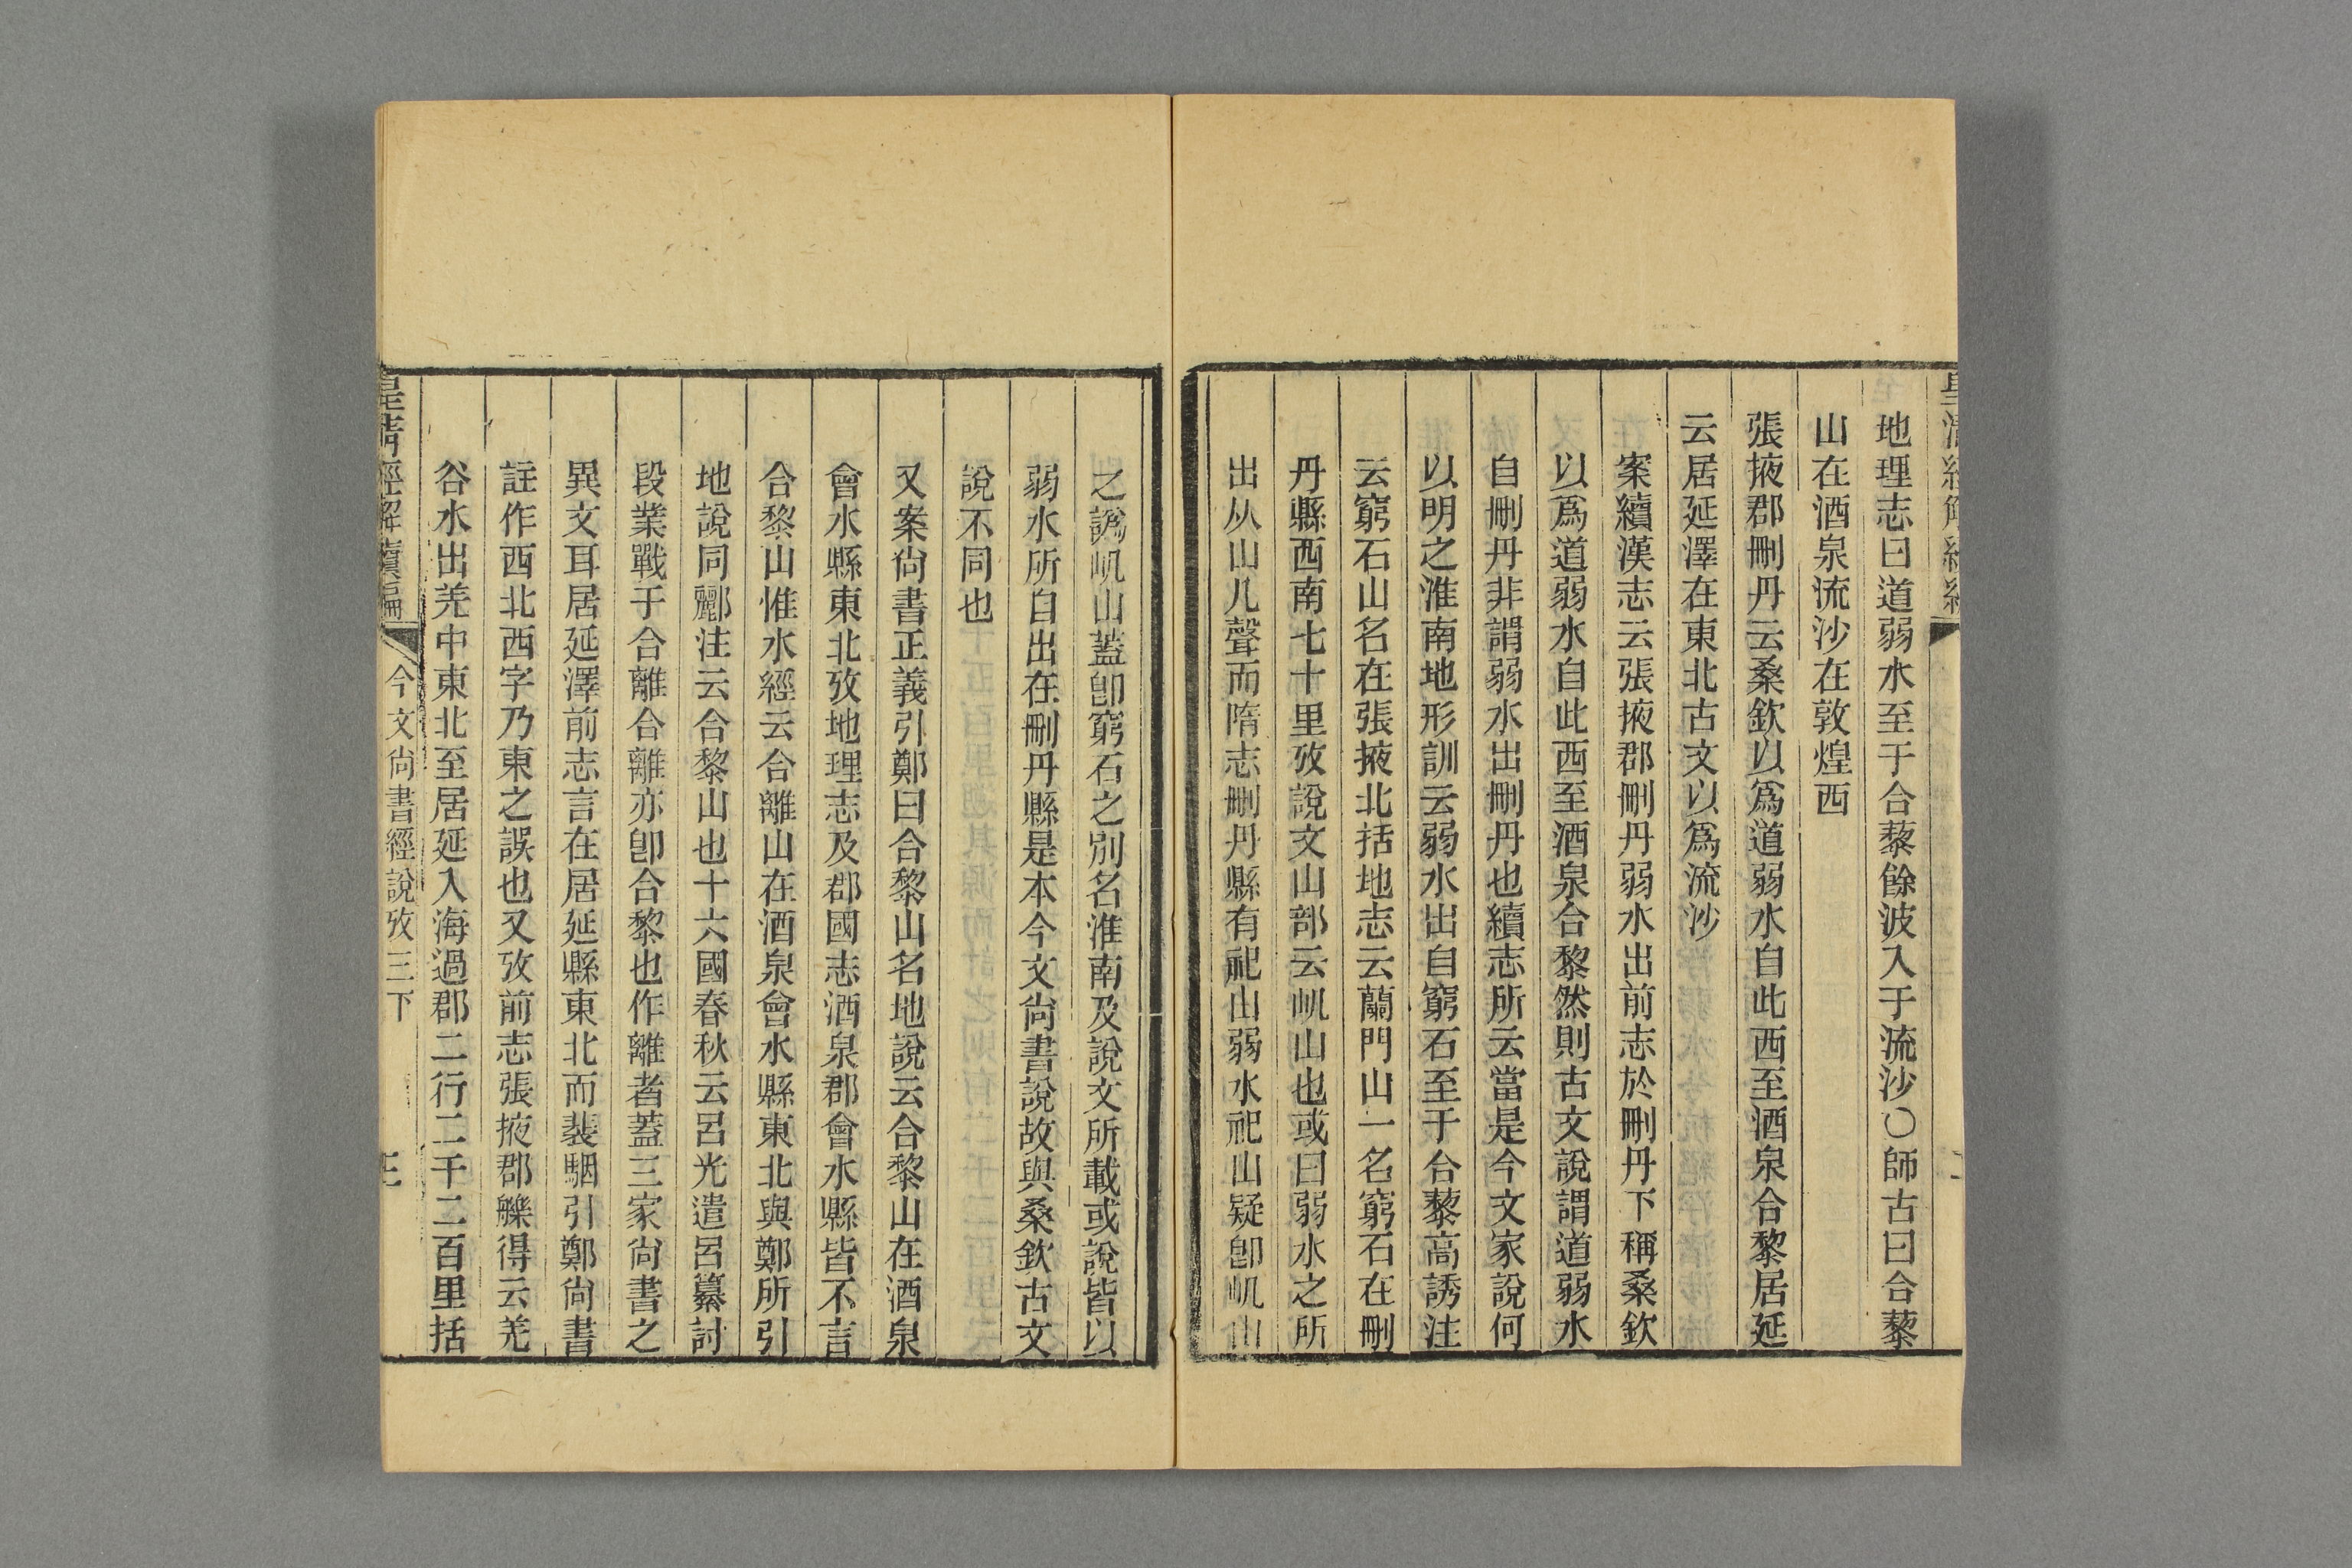 地理志曰道弱水至于合藜餘波入于流沙〇師古曰合藜
山在酒泉流沙在敦煌西
張掖郡刪丹云桑欽以爲道弱水自此西至酒泉合黎居延
云居延澤在東北古文以爲流沙
案續漢志云張掖郡刪丹弱水出前志於刪丹下稱桑欽
以爲道弱水自此西至酒泉合黎然則古文說謂道弱水
自刪丹非謂弱水出刪丹也續志所云當是今文家說何
以明之淮南地形訓云弱水出自窮石至于合藜高誘注
云窮石山名在張掖北括地志云蘭門山一名窮石在刪
丹縣西南七十里攷說文山部云㞦山也或曰弱水之所
出从山几聲而隋志刪丹縣有祀山弱水祀山疑卽㞦山
之譌㞦山蓋卽窮石之別名淮南及說文所載或說皆以
弱水所自出在刪丹縣是本今文尙書說故與桑欽古文
說不同也
又案尙書正義引鄭曰合黎山名地說云合黎山在酒泉
會水縣東北攷地理志及郡國志酒泉郡會水縣皆不言
合黎山惟水經云合離山在酒泉會水縣東北與鄭所引
地說同酈注云合黎山也十六國春秋云呂光遣呂纂討
段業戰于合離合離亦卽合黎也作離者蓋三家尙書之
異文耳居延澤前志言在居延縣東北而裴駰引鄭尙書
註作西北西字乃東之誤也又攷前志張掖郡觻得云羌
谷水出羌中東北至居延入海過郡二行二千二百里括
皇清經解續編
今文尙書經說攷三下